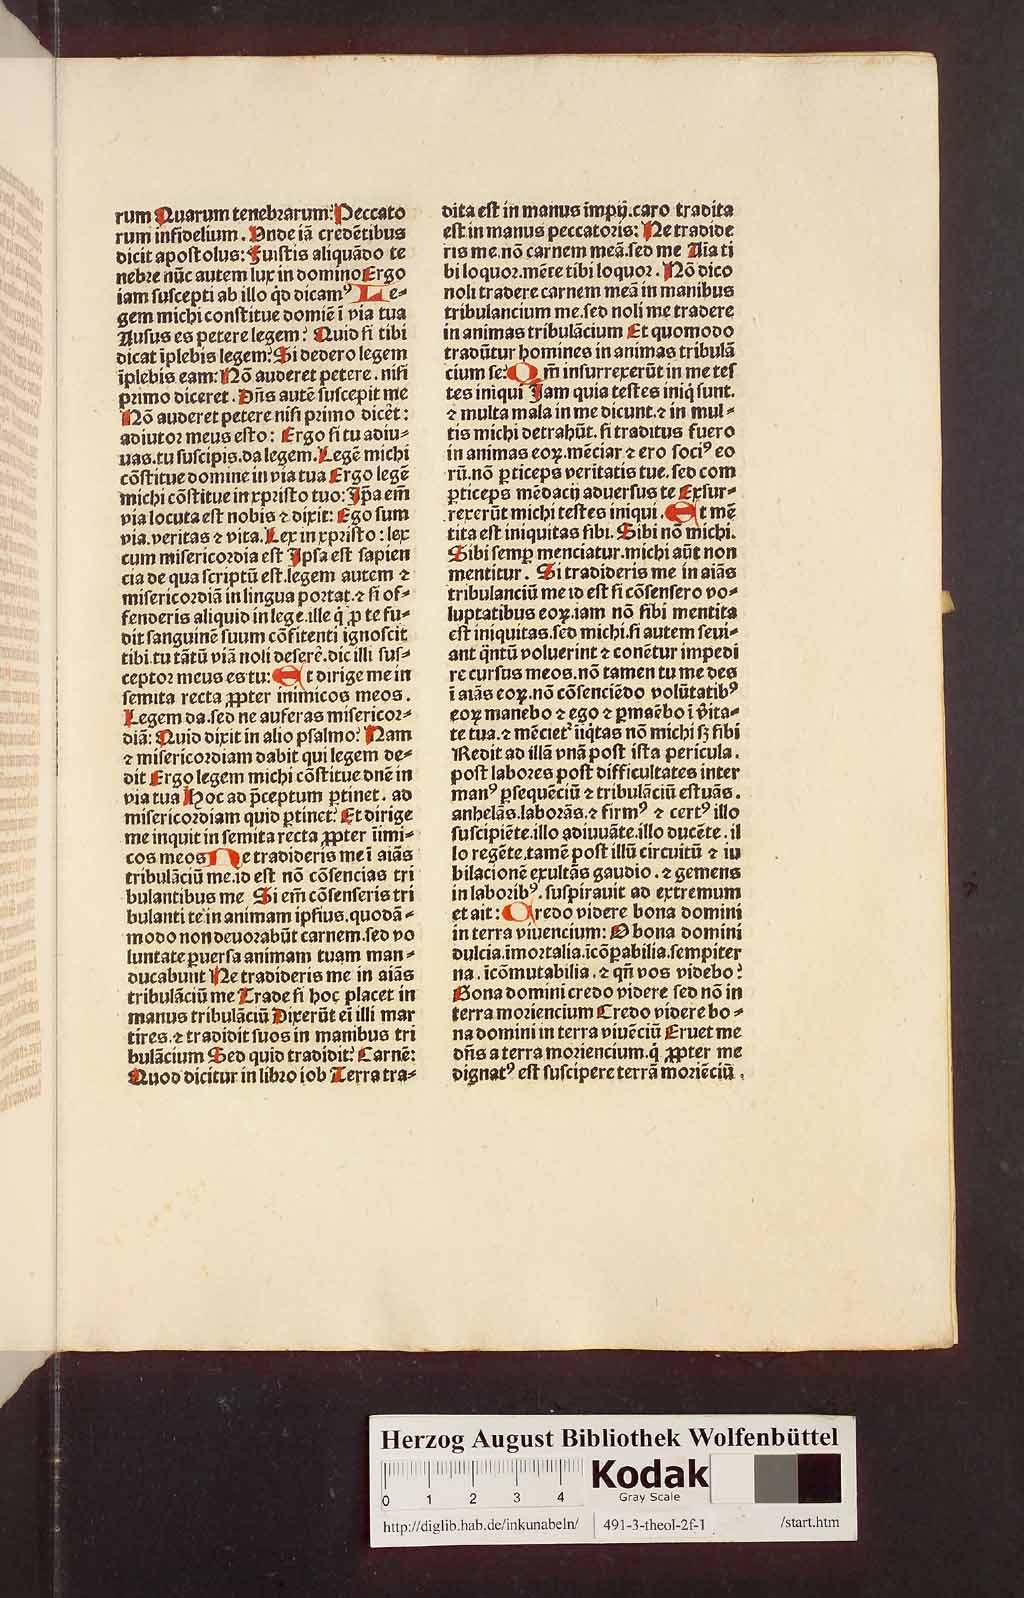 rum Quarum tenebrarum: Peccato
rum infidelium. Vnde iã credẽtibus
dicit apostolus: Fuistis aliquãdo te
nebre nũc autem lux in domino Ergo
iam suscepti ab illo qͥd dicamꝰ Le⸗
gem michi constitue domiẽ ĩ via tua
Ausus es petere legem? Quid si tibi
dicat ĩplebis legem? Si dedero legem
ĩplebis eam: Nõ auderet petere. nisi
primo diceret. Dñs autẽ suscepit me
Nõ auderet petere nisi primo dicẽt:
adiutor meus esto: Ergo si tu adiu⸗
uas. tu suscipis. da legem. Legẽ michi
cõstitue domine in via tua Ergo legẽ
michi cõstitue in xpristo tuo: Ip̃a em̃
via locuta est nobis ⁊ dixit: Ego sum
via. veritas ⁊ vita. Lex in xpristo: lex
cum misericordia est Ipsa est sapien
cia de qua scriptũ est. legem autem ⁊
misericordiã in lingua portat. ⁊ si of⸗
fenderis aliquid in lege. ille q̇ ꝓ te fu⸗
dit sanguinẽ suum cõfitenti ignoscit
tibi. tu tãtũ viã noli deserẽ. dic illi sus⸗
ceptor meus es tu: Et dirige me in
semita recta ꝓpter inimicos meos.
Legem da. sed ne auferas misericor⸗
diã: Quid dixit in alio psalmo? Nam
⁊ misericordiam dabit qui legem de⸗
dit Ergo legem michi cõstitue dñe in
via tua Hoc ad p̃ceptum ꝑtinet. ad
misericordiam quid ꝑtinet? Et dirige
me inquit in semita recta ꝓpter ĩimi⸗
cos meos Ne tradideris me ĩ aĩas
tribulãciũ me. id est nõ cõsencias tri
bulantibus me. Si em̃ cõsenseris tri
bulanti te in animam ipsius. quodã⸗
modo non deuorabũt carnem. sed vo
luntate ꝑuersa animam tuam man⸗
ducabunt Ne tradideris me in aĩas
tribulãciũ me Trade si hoc placet in
manus tribulãciũ Dixerũt eĩ illi mar
tires. ⁊ tradidit suos in manibus tri
bulãcium Sed quid tradidit? Carnẽ:
Quod dicitur in libro iob Terra tra⸗
dita est in manus impij. caro tradita
est in manus peccatoris: Ne tradide
ris me. nõ carnem meã. sed me Aĩa ti
bi loquor. mẽte tibi loquor. Nõ dico
noli tradere carnem meã in manibus
tribulancium me. sed noli me tradere
in animas tribulãcium Et quomodo
tradũtur homines in animas tribulã
cium se? Qm̃ insurrexerũt in me tes
tes iniqui Iam quia testes iniq̇ sunt.
⁊ multa mala in me dicunt. ⁊ in mul⸗
tis michi detrahũt. si traditus fuero
in animas eoꝝ. mẽciar ⁊ ero sociꝰ eo
rũ. nõ ꝑticeps veritatis tue. sed com
ꝑticeps mẽdacij aduersus te Exsur⸗
rexerũt michi testes iniqui. Et mẽ
tita est iniquitas sibi. Sibi nõ michi.
Sibi semꝑ menciatur. michi aũt non
mentitur. Si tradideris me in aĩas
tribulanciũ me id est si cõsensero vo⸗
luptatibus eoꝝ. iam nõ sibi mentita
est iniquitas. sed michi. si autem seui⸗
ant q̃ntũ voluerint ⁊ conẽtur impedi
re cursus meos. nõ tamen tu me des
ĩ aĩas eoꝝ. nõ cõsenciẽdo volũtatibꝰ
eoꝝ manebo ⁊ ego ⁊ ꝑmaẽbo ĩ v̾ita⸗
te tua. ⁊ mẽciet᷑ ĩiq̇tas nõ michi sꝫ sibi
Redit ad illã vnã post ista pericula.
post labores post difficultates inter
manꝰ ꝑsequẽciũ ⁊ tribulãciũ estuãs.
anhelãs. laborãs. ⁊ firmꝰ ⁊ certꝰ illo
suscipiẽte. illo adiuuãte. illo ducẽte. il
lo regẽte. tamẽ post illũ circuitũ ⁊ iu
bilacionẽ exultãs gaudio. ⁊ gemens
in laboribꝰ. suspirauit ad extremum
et ait: Credo videre bona domini
in terra viuencium: O bona domini
dulcia. ĩmortalia. ĩcõꝑabilia. sempiter
na. ĩcõmutabilia. ⁊ qñ vos videbo?
Bona domini credo videre sed nõ in
terra moriencium Credo videre bo⸗
na domini in terra viuẽciũ Eruet me
dñs a terra moriencium. q̇ ꝓpter me
dignatꝰ est suscipere terrã moriẽciũ.
Herzog August Bibliothek Wolfenbüttel
0 1 2 3 4
Kodak
Gray Scale
http://diglib.hab.de/inkunabeln/ 491-3-theol-2f-1 /start.htm